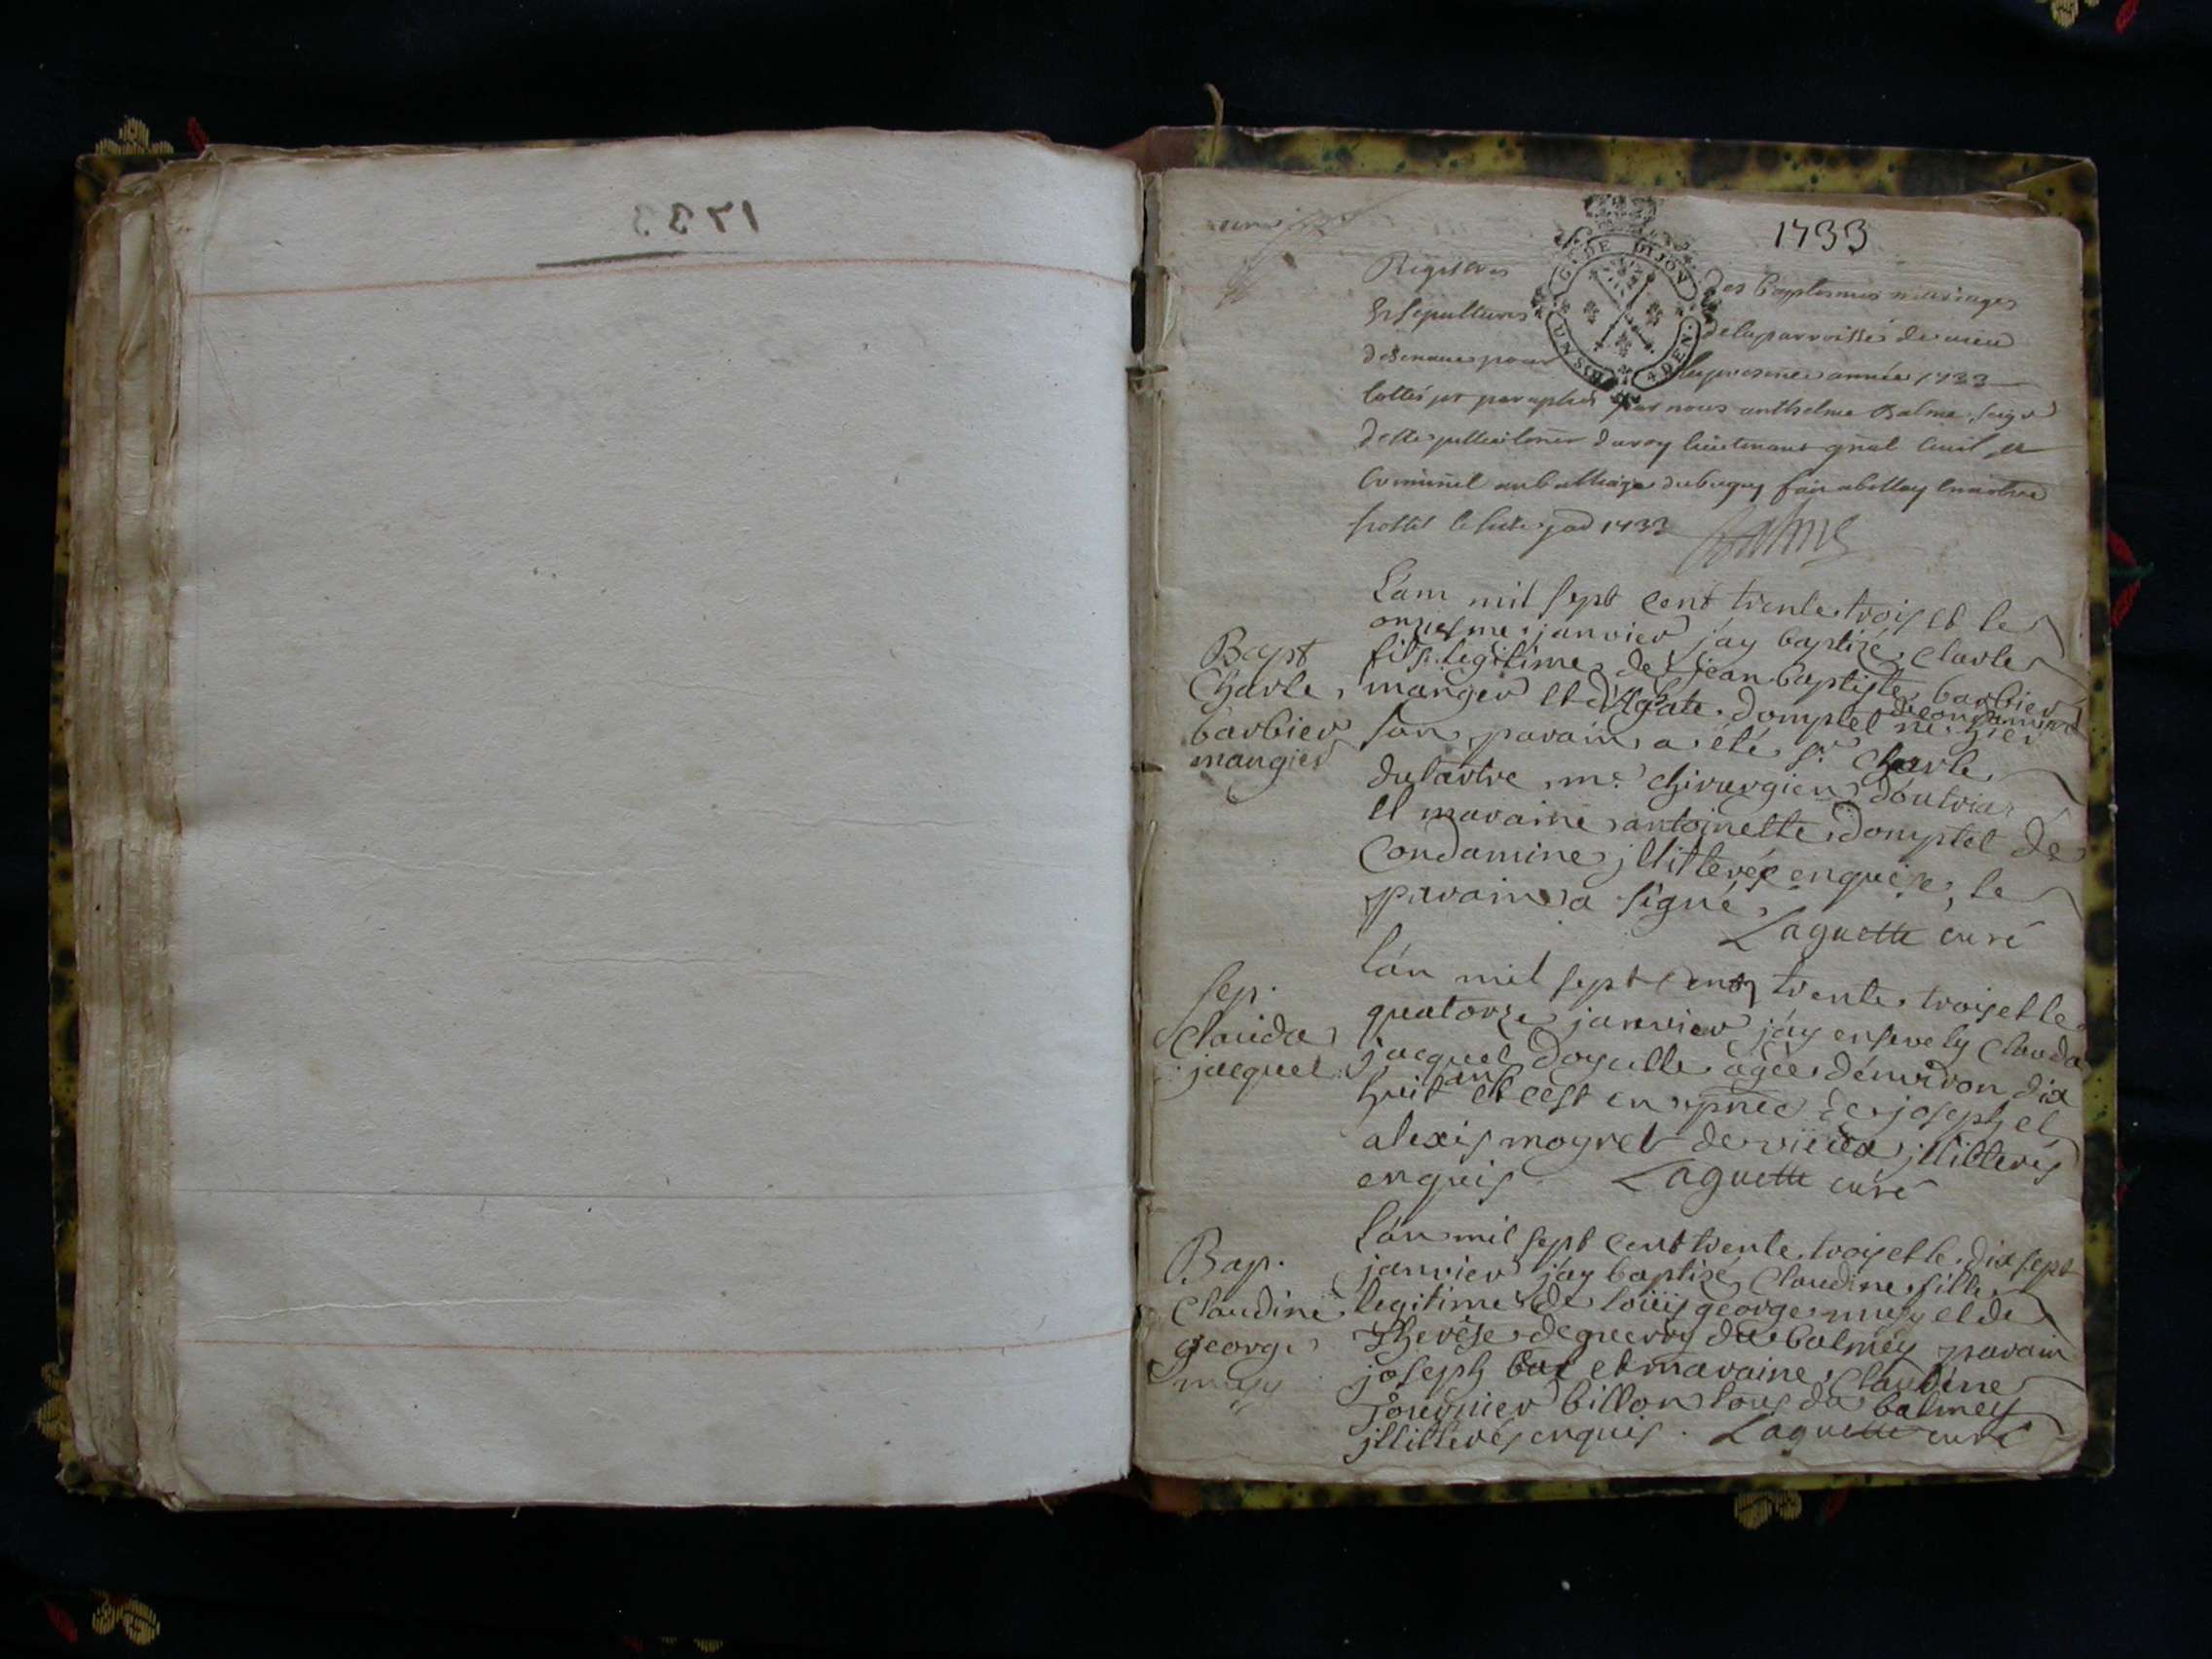 1733
Registres des baptesmes mariages
Et sepultures de la parroisse de vieu
pour la presente année 1733
cottés et paraphés par nous anthelme Balme, seigr
du roy lieutenant gnal civil et
criminel au bailliage du bugey
1733 Balme
G. DE DIJON
4 DEN.
Bapt
Charle
barbier
mangier
L'an mil sept cent trente trois et le
onziesme janvier j'ay baptizé Charle
fils legitime de jean baptiste barbier
manger et d'Agate domptet de condamine né hier
son parain a été sr. Charle
dutartre me. chirurgien d'outria
et maraine antoinette domptet de
Condamine jllitterée enquise, le
parain a signé,
Laguette curé
sep.
Clauda
jacquet
l'an mil sept cent trente trois et le
quatorze janvier j'ay ensevely Clauda
jacquet agée d'environ dix
huit ans et c'est en pnce de joseph et
alexis moyret de jllitterés
enquis. Laguette curé
Bap.
Claudine
george
musy
l'an mil sept cent trente trois et le dix sept
janvier j'ay baptizé Claudine fille
legitime de loüis george musy et de
Therése deguerry du balmey parain
joseph et maraine Claudine
billon tous du balmey
jllitterés enquis. Laguette curé